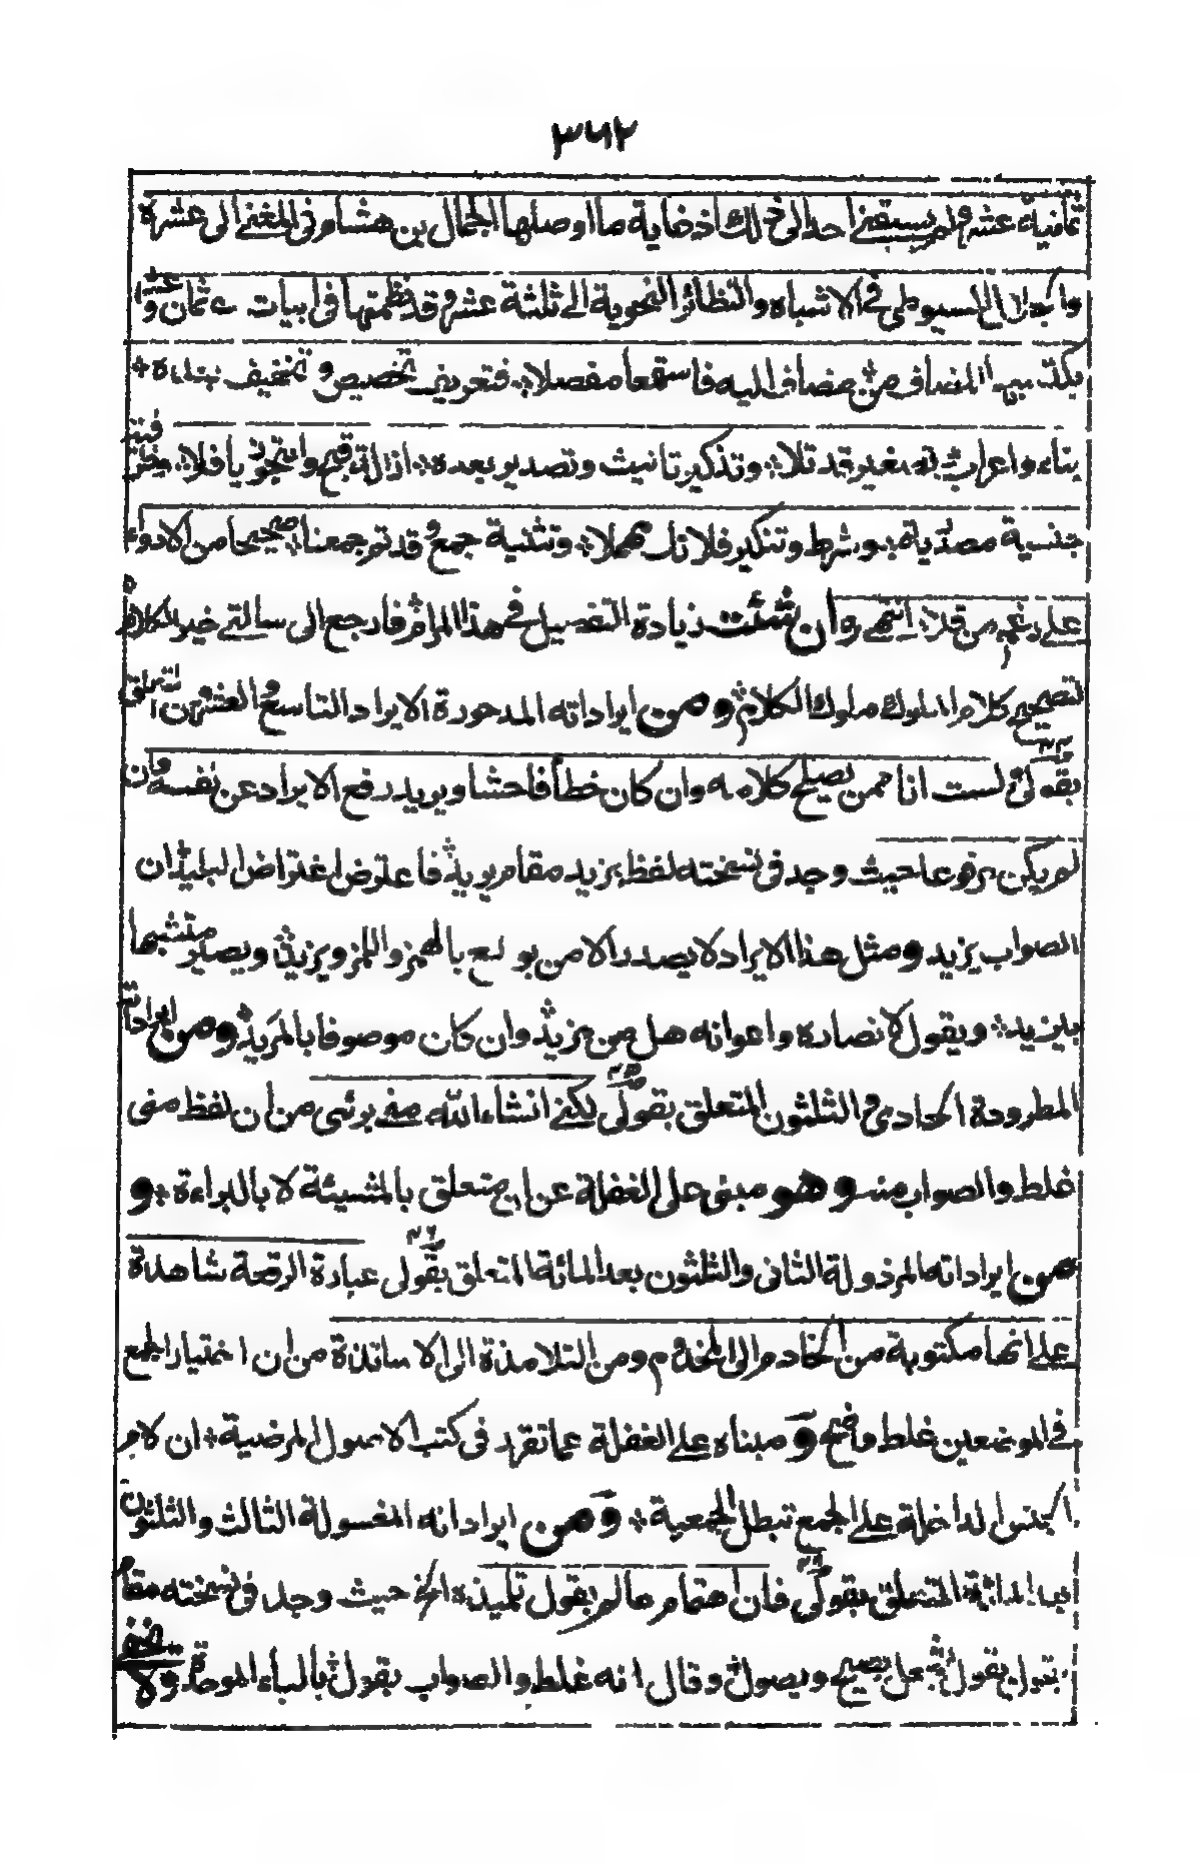 ٣٦٢
ثمانية عشر ولم يسبقني احد الى ذلك اذ غاية ما اوصلها الجمال بن هشام في المغني الى عشرة
والجلال السيوطي في الاشباه والنظائر النحوية الى ثلثة عشر وقد نظمتها في ابيات ثمان
يكتسب المضاف من مضاف اليه فاستمعا مفصلا فتعريف تخصيص وتخفيف
بناء واعراب تصغير قد تلا وتذكير تانيث وتصدير بعده ازالة قبح وتجوز يا فلا
جنسية مصدرية وشرط وتنكير فلا تك مهملا وتثنية جمع وقد تم جمعنا صحيحا من الادواء
على رغم من قلا انتهى وان شئت زيادة التفصيل في هذا المرام فارجع الى رسالتي خير الكلام
لتصحيح كلام الملوك ملوك الكلام ومن ايراداته المدحورة الايراد التاسع والعشرون المتعلق
بقولي لست انا ممن يصلح كلامه وان كان خطأ فاحشا ويريد رفع الايراد عن نفسه وان
لم يكن مرفوعا حيث وجد في نسخته لفظ يزيد مقام يريد فاعترض اعتراض البليد ان
الصواب يزيد ومثل هذا الايراد لا يصدر الا من يولع بالهمز واللمز ويزيد ويصير متشبها
بليزيد ويقول لانصاره واعوانه هل من مزيد وان كان موصوفا بالمريد ومن ايراداته
المطروحة الحادي والثلثون المتعلق بقولي لكني انشاء الله منه بريء من ان لفظ منى
غلط والصواب منه وهو مبنى على الغفلة عن انه متعلق بالمشيئة لا بالبراءة و
من ايراداته المرذولة الثاني والثلثون بعد المائة المتعلق بقولي عبارة الرقعة شاهدة
على انها مكتوبة من الخادم الى المخدوم ومن التلامذة الى الاساتذة من ان اختيار الجمع
في الموضعين غلط واضح ومبناه على الغفلة عما تقرر في كتب الاصول المرضية ان لام
الجنس الداخلة على الجمع تبطل الجمعية ومن ايراداته المغسولة الثالث والثلثون
بعد المائة المتعلق بقولي فان اهتمام عالم بقول تلميذه الخ حيث وجد في نسخته مقام
بقول يقول على يصيح ويصول وقال انه غلط والصواب بقول بالباء الموحدة ولا